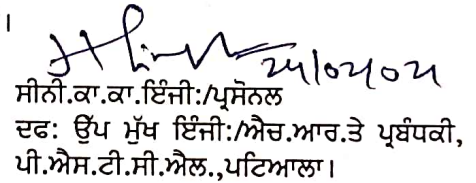 ।
ਸੀਨੀ.ਕਾ.ਕਾ.ਇੰਜੀ:/ਪ੍ਰਸੋਨਲ
ਦਫ: ਉੱਪ ਮੁੱਖ ਇੰਜੀ:/ਐਚ.ਆਰ.ਤੇ ਪ੍ਰਬੰਧਕੀ,
ਪੀ.ਐਸ.ਟੀ.ਸੀ.ਐਲ.,ਪਟਿਆਲਾ।